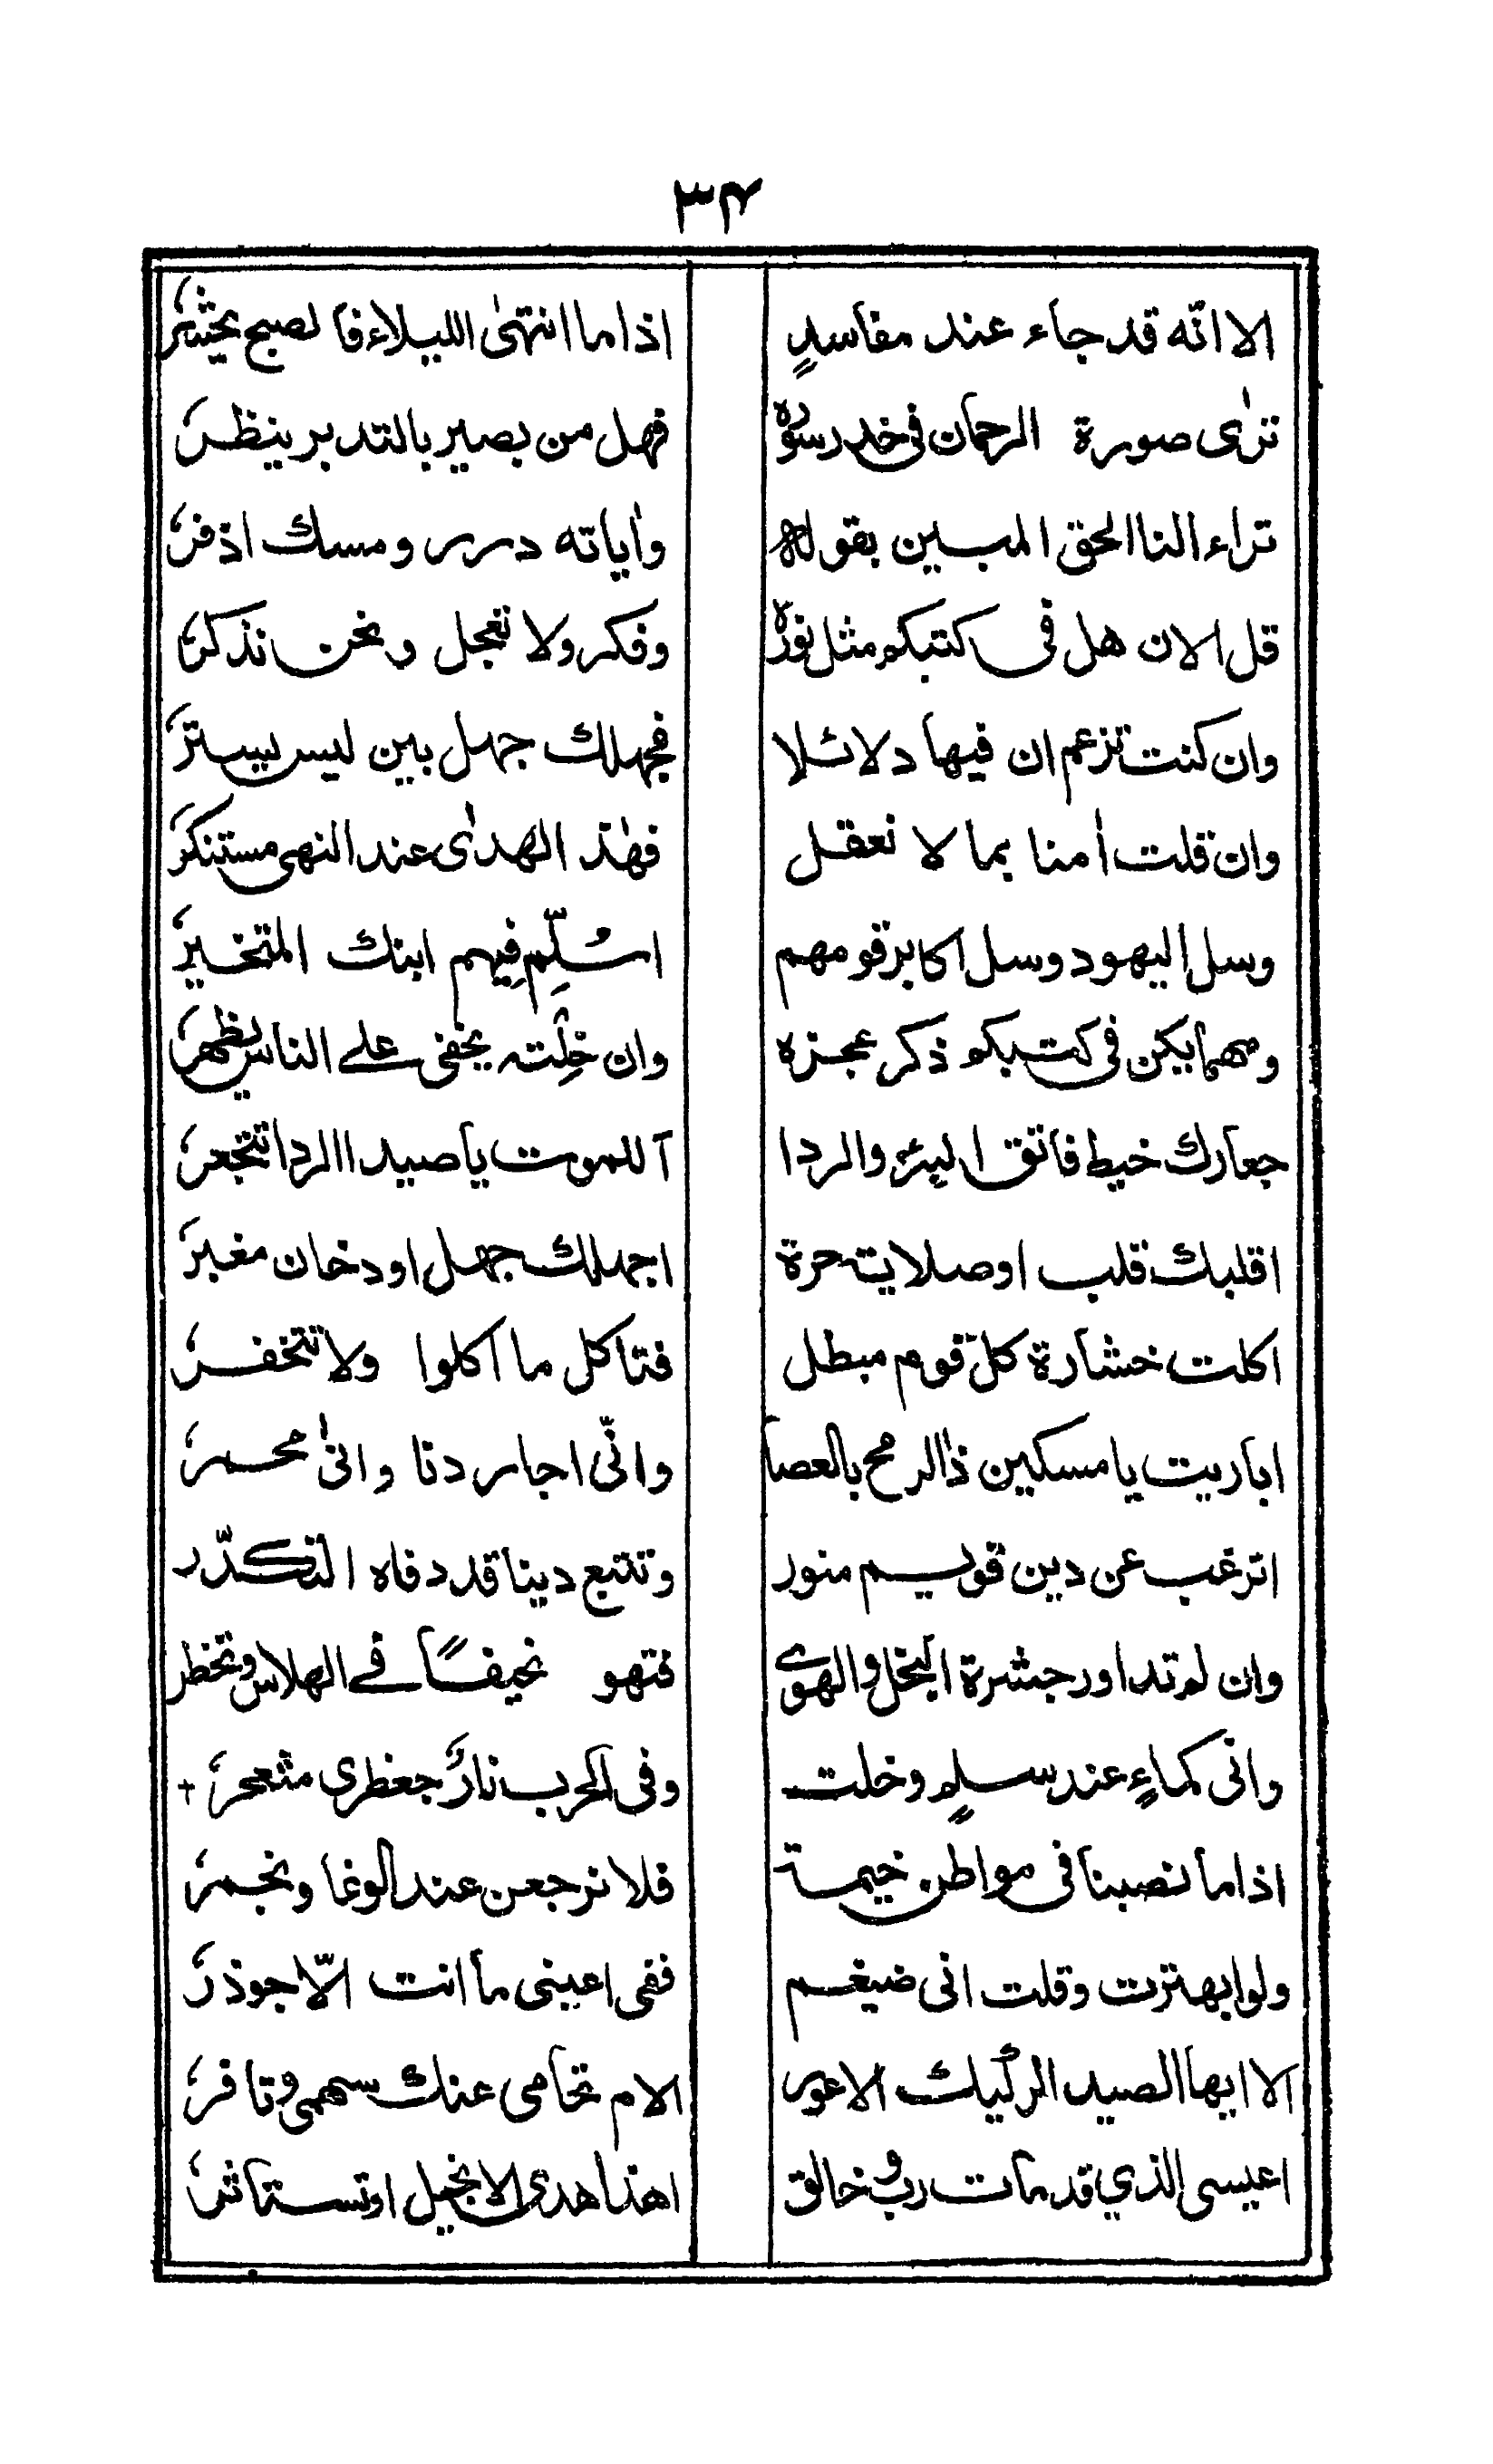 ۳۴
الا انّه قد جاء عند مفاسدٍ اذا ما انتهىٰ الليلاء فالصبح يحشرُ
ترٰى صورة الرحمان فى خدر سورهٖ فهل من بصير بالتدبر ينظرُ
تراء النا الحق المبين بقوله واٰياته درر ومسك اذفرُ
قل الان هل فى كتبكم مثل نورهٖ وفكر ولا تعجل ونحن نذكرُ
وان كنت تزعم ان فيها دلائلا فجهلك جهل بين ليس يسترُ
وان قلت اٰمنا بما لا نعقل فهٰذ الهدٰى عند النهى مستنكرُ
وسل اليهود وسل اكابر قومهم اسُلِّم فِيهم ابنك المتخيرُ
ومهما يكن فى كتبكم ذكر عجزه وان خِلْته يخفى على الناس يظهرُ
جعارك خيط فاتق البئر والردا آللموت يا صيد الردا تتجعرُ
اقلبك قلب او صلاية حرة اجهلك جهل او دخان مغبرُ
اكلت خشارة كلّ قوم مبطل فتاكل ما اكلوا ولا تتخفرُ
اباريت يا مسكين ذا الرمح بالعصا وانّى اجاردنا وانىٰ محمرُ
اترغب عن دين قويم منور وتتبع دينا قد دفاه التكدّر
وان لم تداو رجشرة البخل والهوى فتهو نحيفًا فى الهلاس وتخطر
وانى كماءٍ عند سلمٍ وخلت وفى الحرب نارٌ جعظرى مثعجرُ +
اذا ما نصبنا فى مواطن خيمة فلا نرجعن عند الوغا ونجمرُ
ولو ابهترت وقلت انى ضيغم ففى اعينى ما انت الّا جوذرُ
الا ايها الصيد الركيك الاعور الام تحامى عنك سهمى وتافرُ
اعيسى الذي قد مات رب وخالق اهذا هدى الانجيل او تستاثرُ